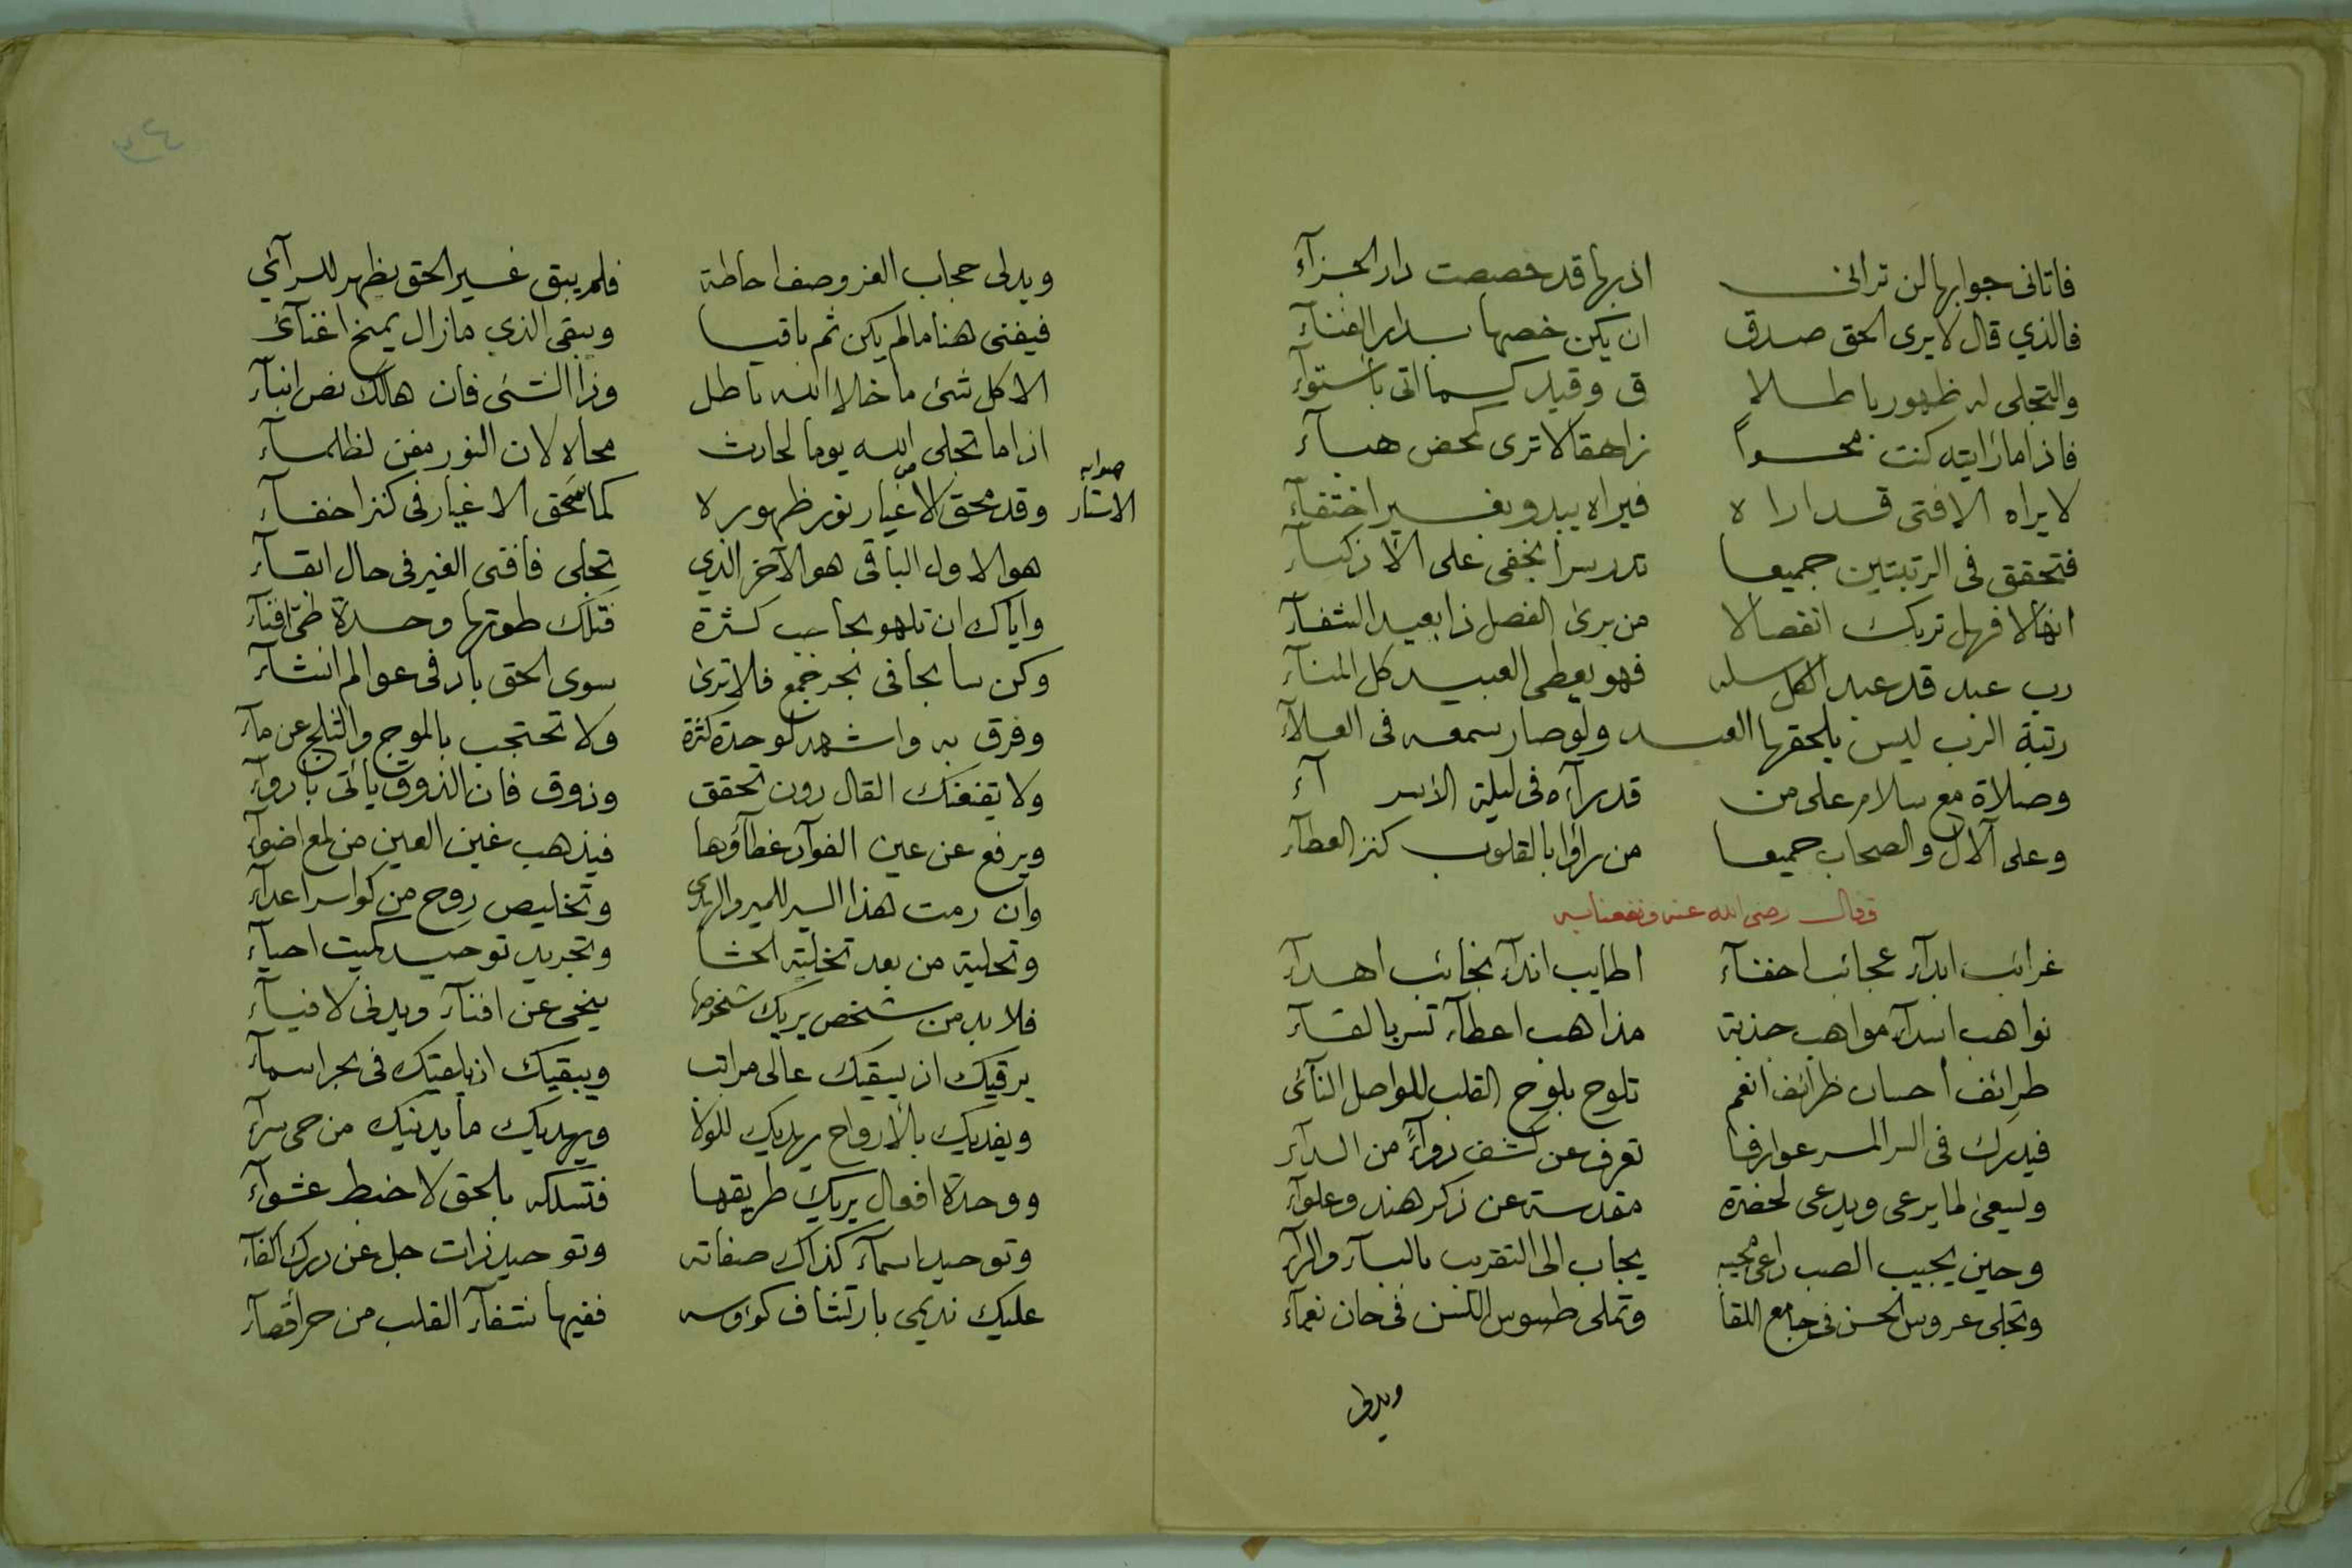 فاتانى جوابها لن ترانى اذ بها قد خصصت دار الجزآء
فالذي قال لا يرى الحق صدق ان يكن خصها بدار الفنآء
والتجلى له ظهور باطلا ق وقيد كما اتى باستوآء
فاذا ما رايته كنت محوا زاهقا لا ترى كمحض هبآء
لا يراه الا فتى قد اراه فيراه يبدو بغير اختفآء
فتحقق فى الرتبتين جميعا تدر سرا يخفى على الاذكيآء
انفالا فهل تريك انفصالا من يرى الفصل ذا بعيد الشفآء
رب عبد قد عبد الكل سله فهو يعطى العبيد كل المنآء
رتبة الرب ليس يلحقها العبد ولو صار سمعه فى العلآء
وصلاة مع سلام على من قد رآه فى ليلة الاسرآء
وعلى الآل والصحاب جميعا من راوا بالقلوب كنز العطآء
وقال رضى الله عنه ونفعنا به
غرائب ابدآء عجائب اخفآء اطايب اندآء نجائب اهدآء
نواهب اسدآء مواهب جذبة مذاهب اعطآء تسر بالقآء
طرائف احسان ظرائف انعم تلوح بلوح القلب للمواصل النآئى
فيدرك فى السر المسر عوارفا تعرف عن كشف دوآءً من الدآء
ويسعى لما يرعى ويدعى لحضرة مقدسة عن ذكر هند وعلوآء
وحين يجيب الصب داعى محبه يجاب الى التقريب بالبآء والرآء
وتجلى عروس الحسن فى جامع اللقا وتملى طسوس الكنس فى حان نعمآء
ويدلى
ويدلى حجاب العز وصف احاطة فلم يبق غير الحق يظهر للرآئي
فيفنى هنا ما لم يكن ثم باقيا ويبقى الذي ما زال يمنح اغنآئى
الا كل شئ ما خلا الله باطل وذا الشئ فان هالك نص انبآء
اذا ما تجلى الله يوما لحادث محاه لان النور مفن لظلمآء
وقد محق الاغيار نور ظهوره كما تمحق الاغيار فى كنز اخفآء
صوابه الاستار
هو الاول الباقى هو الآخر الذي تجلى فافنى الغير فى حال ابقآء
واياك ان تلهو بحاجب كثرة فتلك طوتها وحدة طىّ افنآء
وكن سابحا فى بحر جمع فلا ترى سوى الحق باد فى عوالم انشآء
وفرق به واشهد لوحدة كثرة ولا تحتجب بالموج والثلج عن مآء
ولا تقنعنك القال دون تحقق وذوق فان الذوق ياتى بادوآء
ويرفع عن عين الفوآد غطآؤها فيذهب غين العين من لمع اضوآء
وان رمت هذا السير للمير والهدى وتخليص روح من كواسر اعدآء
وتحلية من بعد تخلية الحشا وتجريد توحيد لميت احيآء
فلا بد من شخص يريك شخوصها ينحى عن افنآء ويدنى لافيآء
يرقيك اذ يسقيك عالى مراتب ويبقيك اذ يلقيك فى بحر اسمآء
ويفديك بالارواح يهديك للولا ويهديك ما يدنيك من حى سرآء
ووحدة افعال يريك طريقها فتسلكه بالحق لا خبط عشوآء
وتوحيد اسمآء كذاك صفاته وتوحيد ذات جل عن درك الفآء
عليك نديمى بارتشاف كؤوسه ففيها شفآء القلب من حر اقصآء